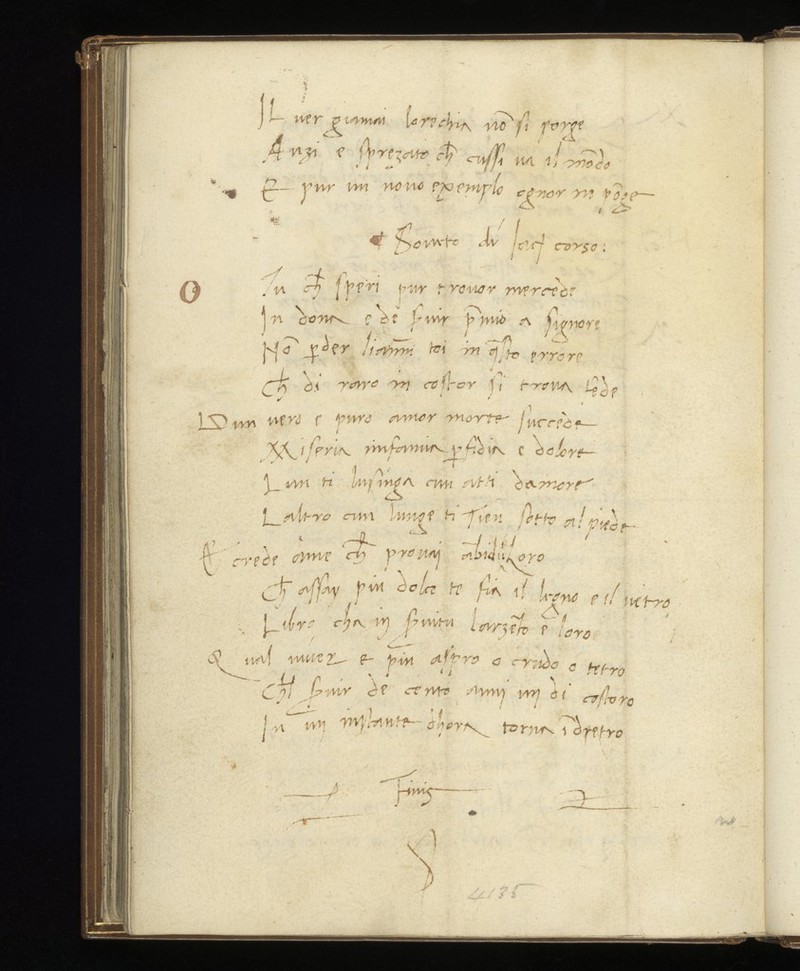 Il ver giamai lorechia nō si porge
Anzi e sprezato ch̄ cussi va il mōdo
E pur un novo exemplo ognor ne pōge
Soneto di Jacō corso:
O Tu ch̄ speri pur trovar mercede
In dona e de s̄vir p̄mio a signore
Nō ꝑder li anni toi in q̄sto errore
Ch̄ di raro in costor si trova fede
Dun vero e puro amor morte succede
Miseria infamia ꝑfidia e dolore
Lun ti lusinga cun atti damore
Laltro cun lunge ti Tien sotto al piede
E crede ā me ch̄ provai ābidui Loro
Ch̄ assay piu dolce te fia il legno e il vetro
Libro cha in s̄vitu larzēto e loro
Qual viver e piu aspro o crudo o tetro
Ch̄l s̄vir de cento anni un di costoro
In un instante dhora torna ī dretro
Finis
4135